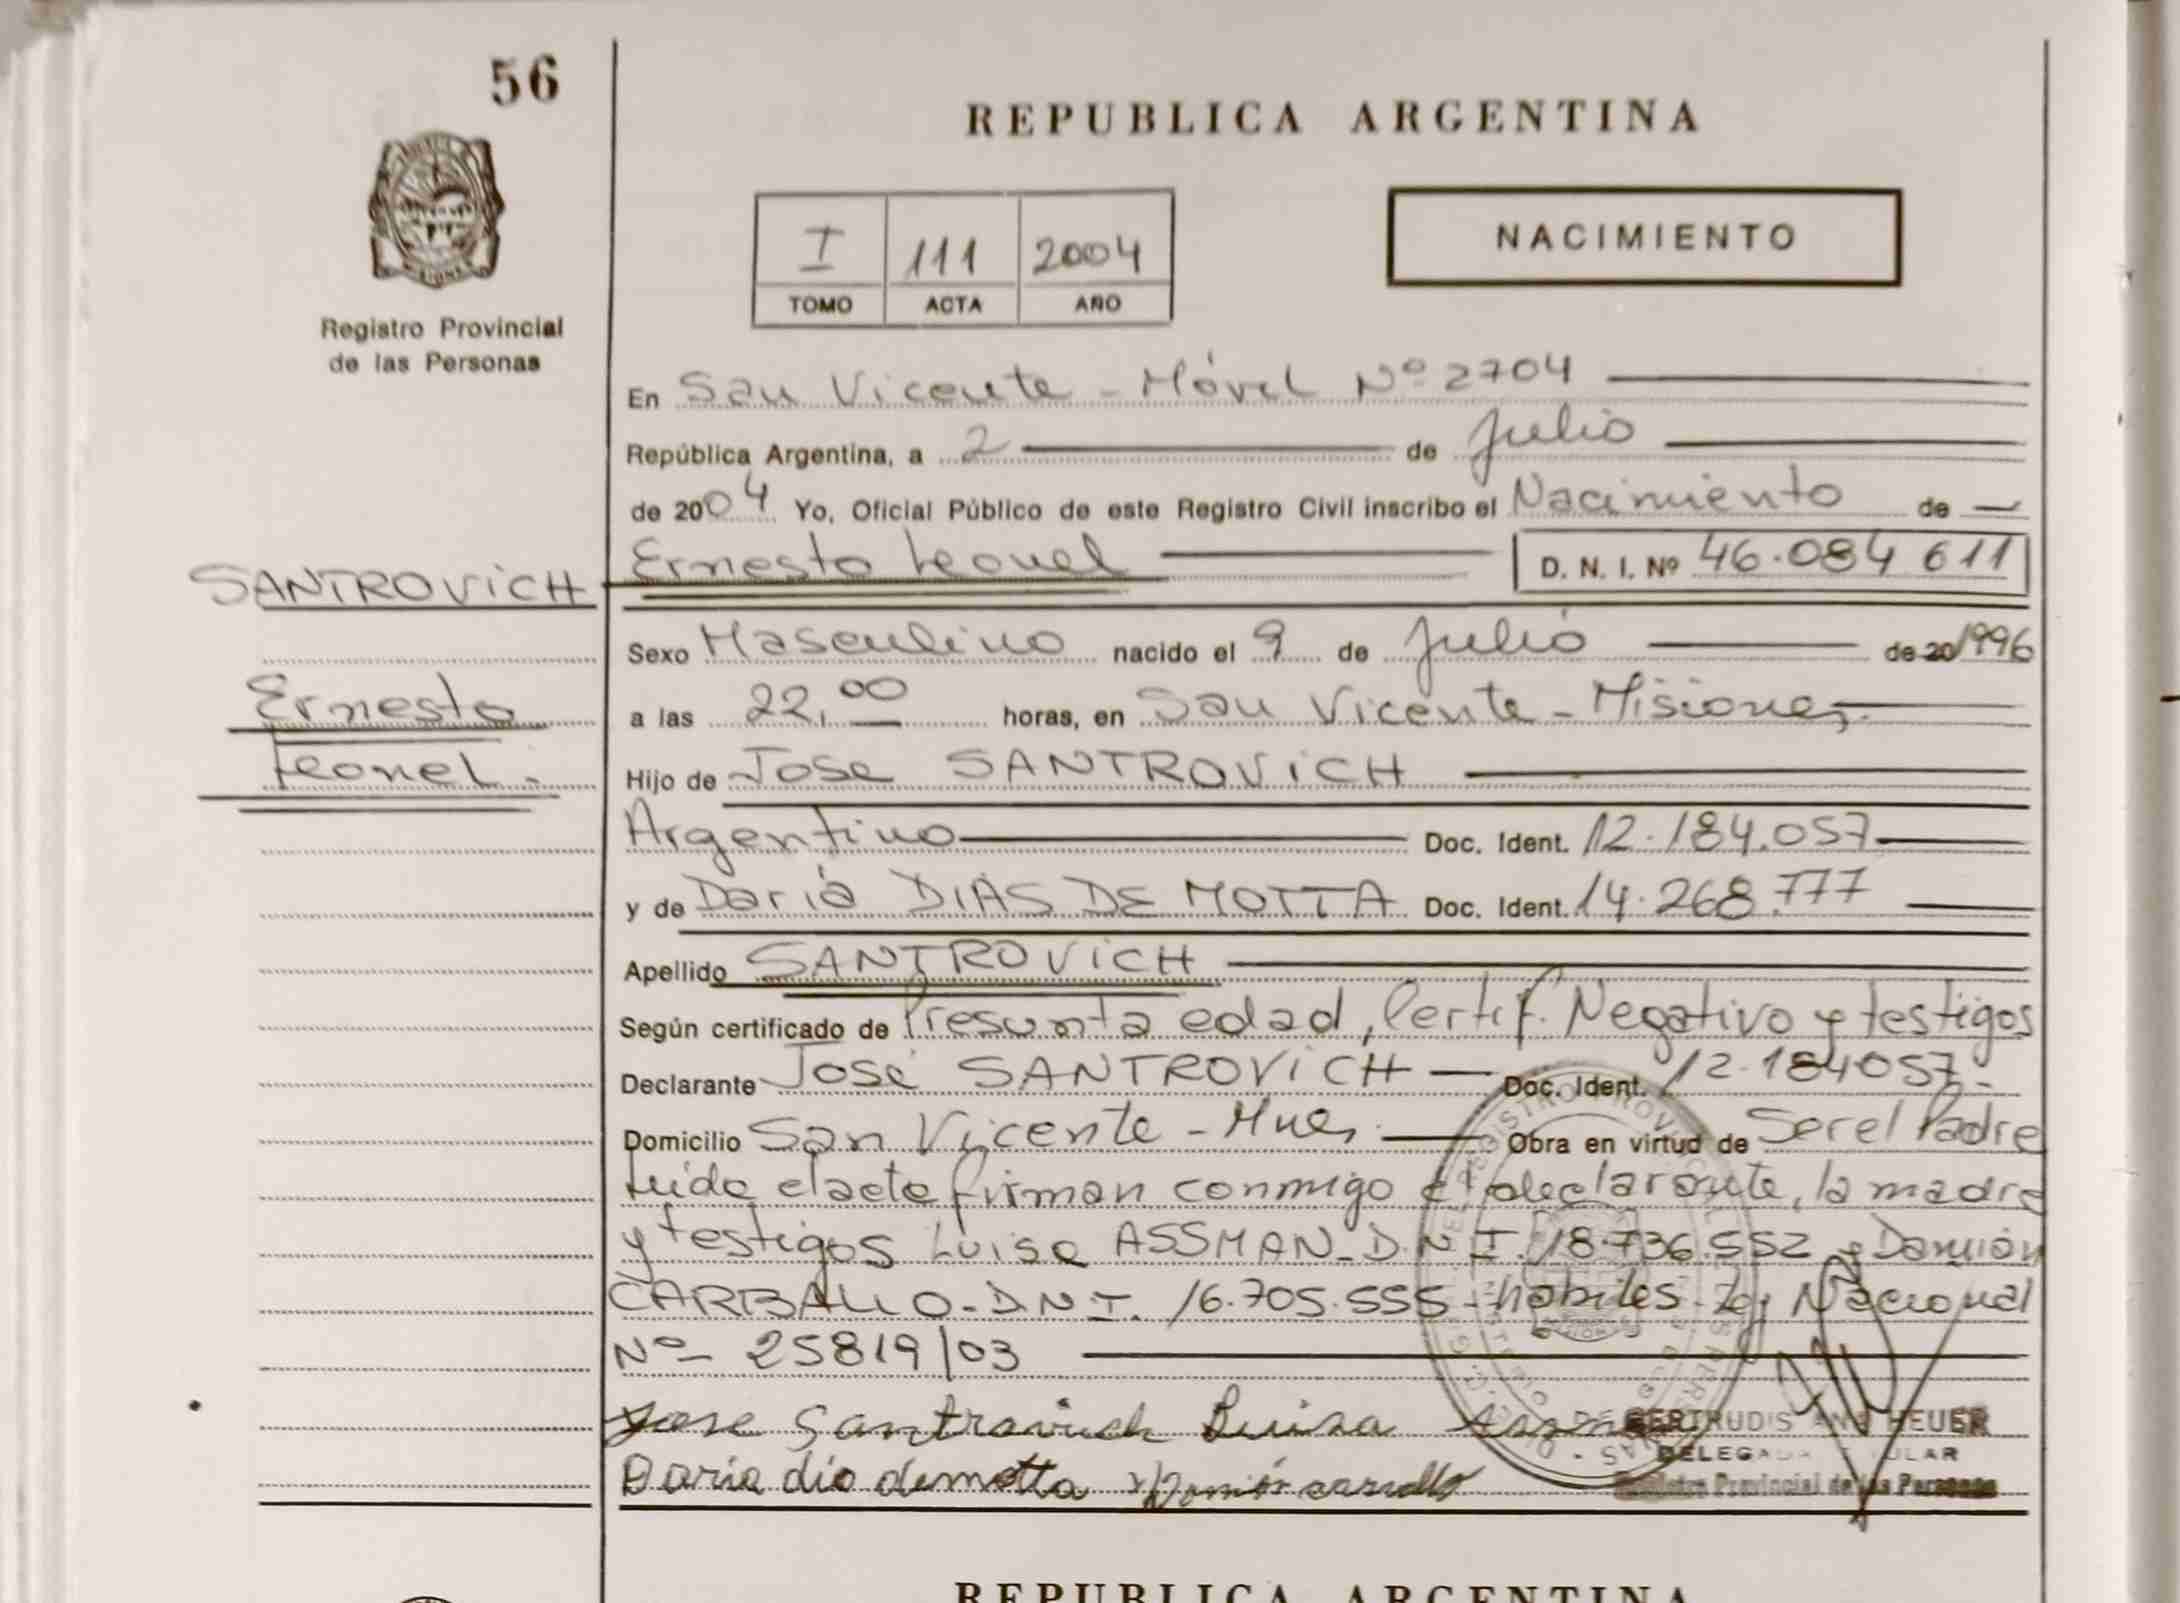 56
REPUBLICA ARGENTINA
I 111 2004
TOMO ACTA AÑO
NACIMIENTO
Registro Provincial
de las Personas
En San Vicente - Móvil Nº 2704
República Argentina, a 2 de Julio
de 2004 Yo, Oficial Público de este Registro Civil inscribo el Nacimiento de
SANTROVICH Ernesto Leonel D. N. I. Nº 46.084 611
Sexo Masculino nacido el 9 de Julio de 20 1996
Ernesto a las 22,00 horas, en San Vicente - Misiones
Leonel. Hijo de Jose SANTROVICH
Argentino Doc. Ident. 12.184.057
y de Daria DIAS DE MOTTA Doc. Ident. 14.268.777
Apellido SANTROVICH
Según certificado de Presunta edad, Certif. Negativo y testigos
Declarante José SANTROVICH Doc. Ident. 12.184057.
Domicilio San Vicente - Mnes. Obra en virtud de Ser el Padre
Leída el acta firman conmigo el declarante, la madre
y testigos Luisa ASSMAN - D.N.I. 18.736.552 y Damián
CARBALLO - D.N.I. 16.705.555 - hábiles - Ley Nacional
Nº 25819/03
Jose Santrovich Luisa
GERTRUDIS ANA HEUER
DELEGADA TITULAR
Registro Provincial de las Personas
Daria dio demotta Damión
REPUBLICA ARGENTINA